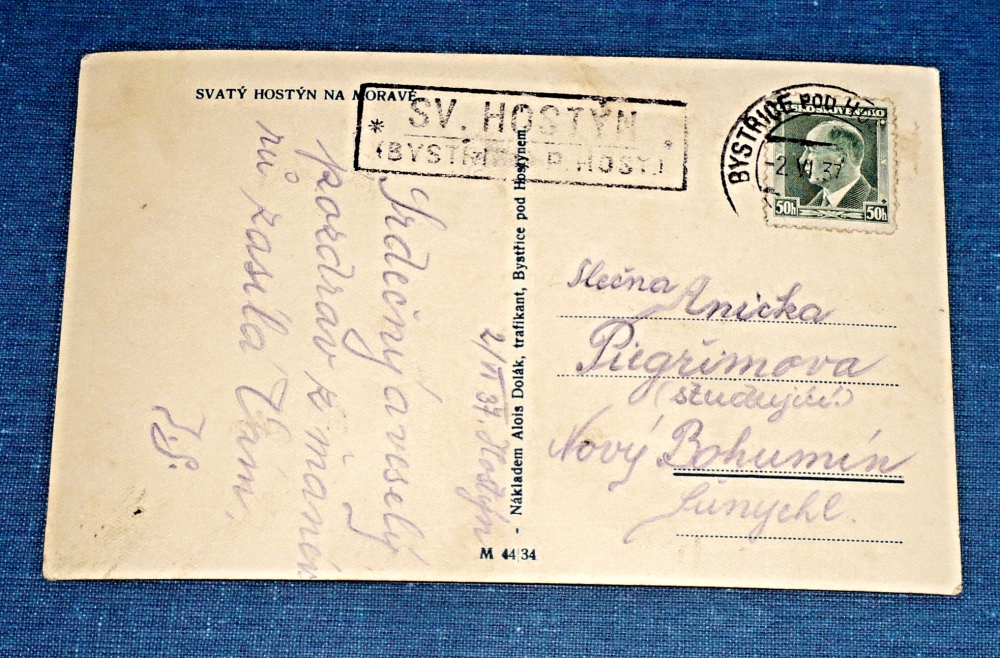 SVATÝ HOSTÝN NA MORAVĚ
* SV. HOSTÝN *
(BYSTŘICE P. HOST.)
BYSTŘICE POD H
2. VI. 37
50h 50h
Srdečný a veselý
pozdrav z
zasílá Vám
2/VI 37. Hostýn
- Nákladem Alois Dolák, trafikant, Bystřice pod Hostýnem.
M 44 34
Slečna Anička
Piegrimova
(studující)
Nový Bohumín
Šunychl.